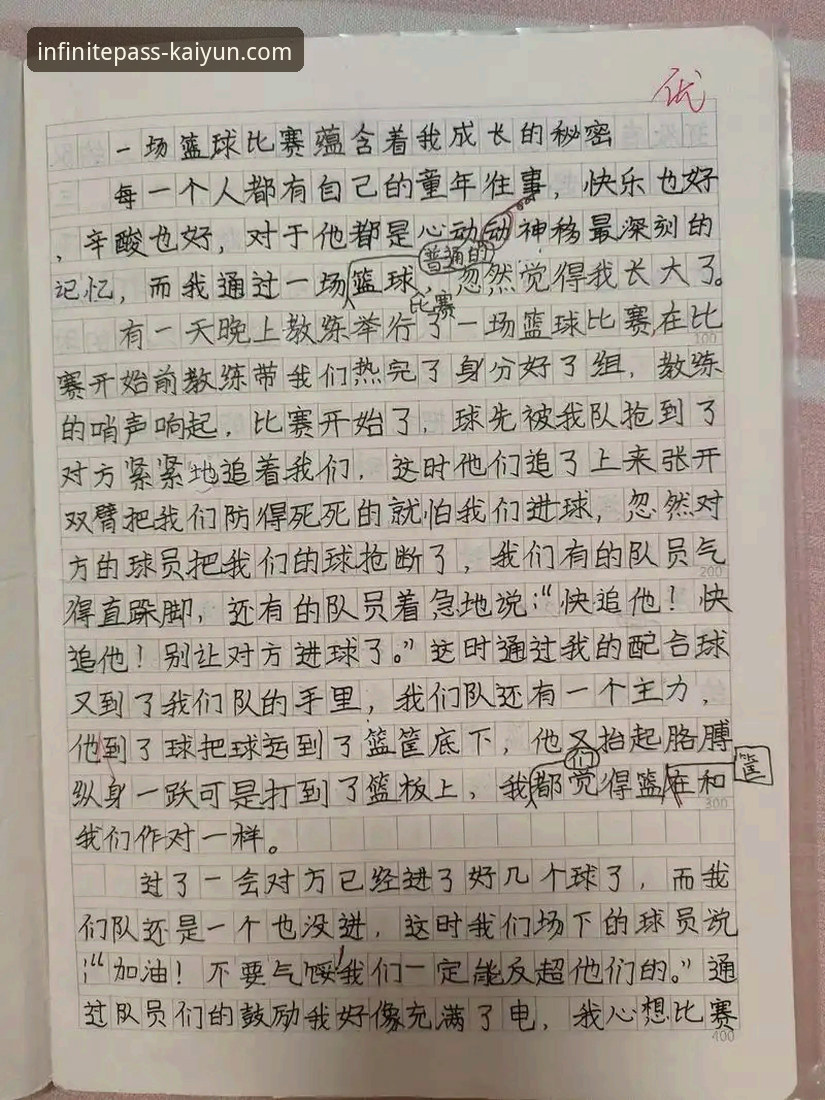 infinitepass-kaiyun.com
优
一场篮球比赛蕴含着我成长的秘密
每一个人都有自己的童年往事，快乐也好
，辛酸也好，对于他都是心动动神移最深刻的
普通的
记忆，而我通过一场篮球，忽然觉得我长大了。
比赛
有一天晚上教练举行了一场篮球比赛,在比
100
赛开始前教练带我们热完了身分好了组，教练
的哨声响起，比赛开始了，球先被我队抢到了
对方紧紧地追着我们，这时他们追了上来张开
双臂把我们防得死死的就怕我们进球，忽然对
方的球员把我们的球抢断了，我们有的队员气
200
得直跺脚，还有的队员着急地说：“快追他！快
追他！别让对方进球了。”这时通过我的配合球
又到了我们队的手里，我们队还有一个主力，
他到了球把球运到了篮筐底下，他又抬起胳膊
们
筐
纵身一跃可是打到了篮板上，我都觉得篮在和
300
我们作对一样。
过了一会对方已经进了好几个球了，而我
们队还是一个也没进，这时我们场下的球员说
：“加油！不要气馁！我们一定能反超他们的。”通
过队员们的鼓励我好像充满了电，我心想比赛
400